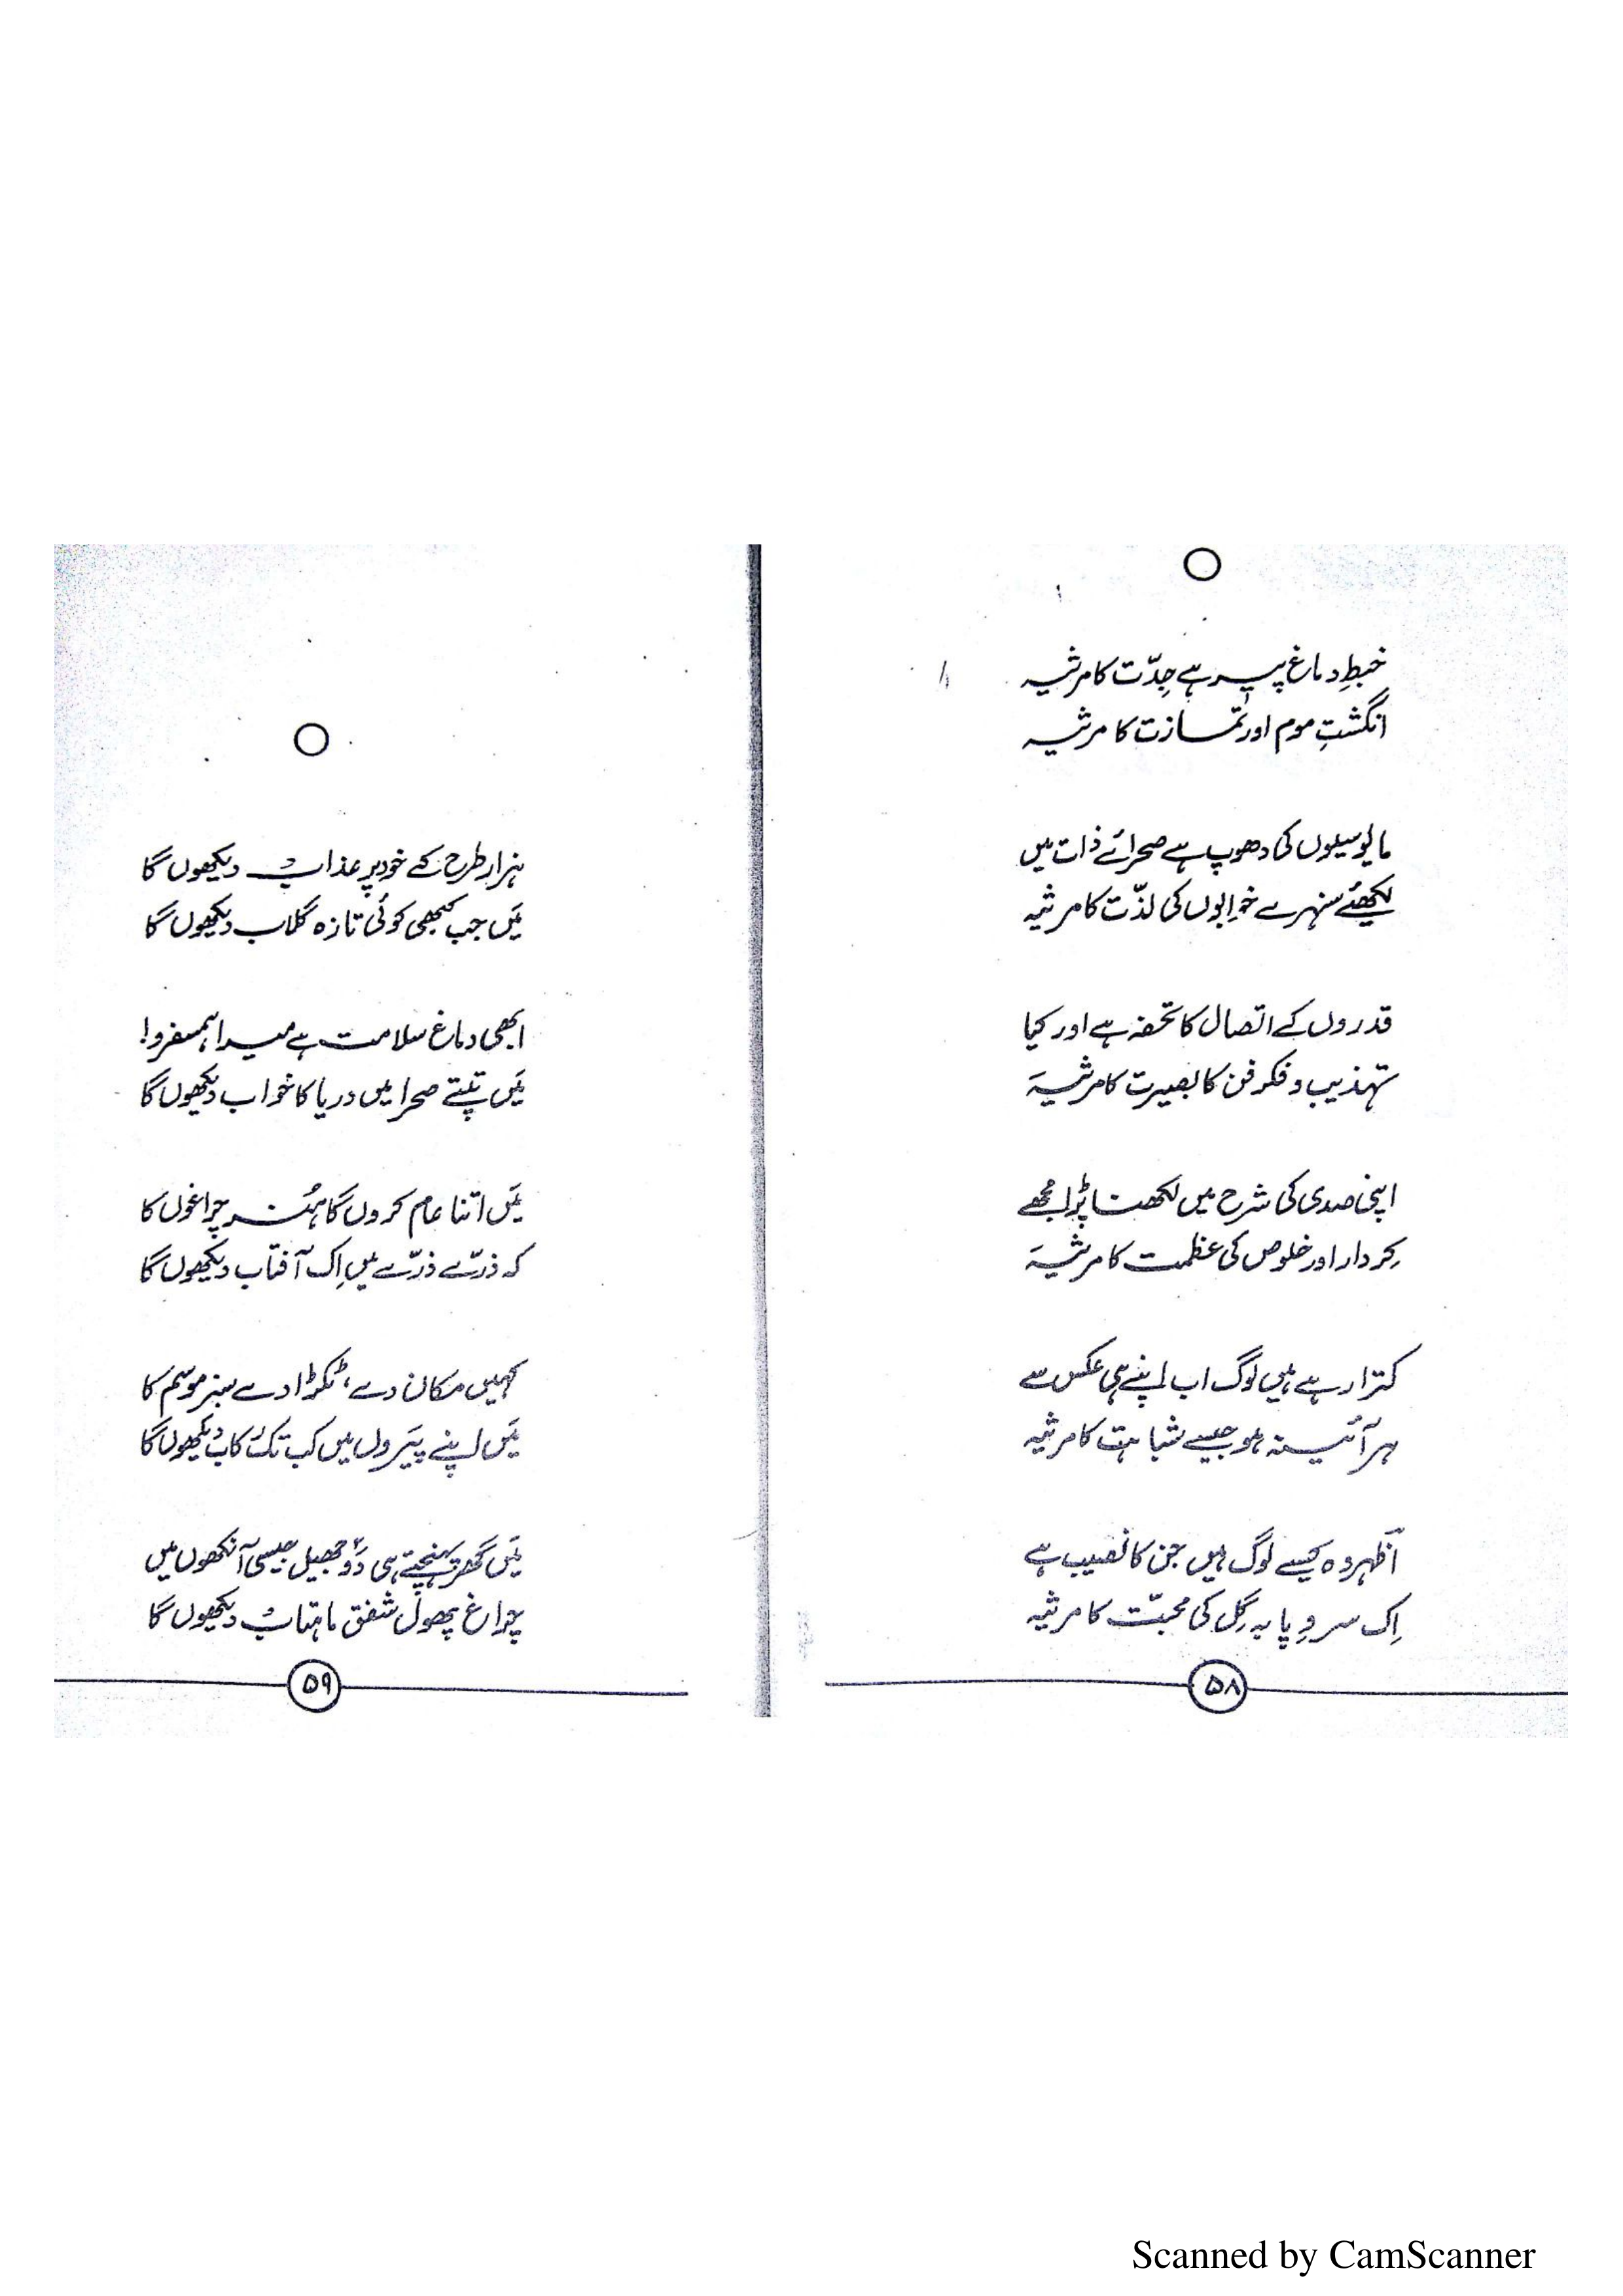 خبطِ دماغ پیر ہے جِدّت کا مرثیہ
انگشتِ موم اور تمازت کا مرثیہ
مایوسیوں کی دھوپ ہے صحرائے ذات میں
لکھئے سنہرے خوابوں کی لذّت کا مرثیہ
قدروں کے اتصال کا تحفہ ہے اور کیا
تہذیب و فکر فن کا بصیرت کا مرثیہ
اپنی صدی کی شرح میں لکھنا پڑا مجھے
کِردار اور خلوص کی عظمت کا مرثیہ
کترا رہے ہیں لوگ اب اپنے ہی عکس سے
ہر آئینہ ہو جیسے شباہت کا مرثیہ
اظہر وہ کیسے لوگ ہیں جن کا نصیب ہے
اِک سروِ پا بہ گِل کی محبّت کا مرثیہ
۵۸
ہزار طرح کے خود پر عذاب دیکھوں گا
مَیں جب کبھی کوئی تازہ گلاب دیکھوں گا
ابھی دماغ سلامت ہے میرا ہمسفرو!
مَیں تپتے صحرا میں دریا کا خواب دیکھوں گا
مَیں اتنا عام کروں گا ہُنر چراغوں کا
کہ ذرّے ذرّے میں اِک آفتاب دیکھوں گا
کہیں مکان دے، ٹکڑا دے سبز موسم کا
مَیں اپنے پَیروں میں کب تک دیکھوں گا
مَیں گھر پہنچتے ہی دو جھیل جیسی آنکھوں میں
چراغ پھول شفق ماہتاب دیکھوں گا
۵۹
Scanned by CamScanner